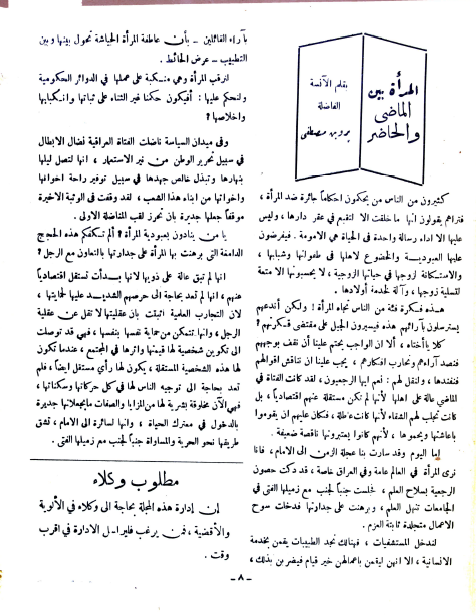 المرأة بين
الماضي
والحاضر
بقلم الآنسة
الفاضلة
بروين مصطفى
كثيرون من الناس من يحكمون احكاماً جائرة ضد المرأة ،
فتراهم يقولون انها ما خلقت الا لتقبع في عقر دارها ، وليس
عليها الا اداء رسالة واحدة في الحياة هي الامومة . فيفرضون
عليها العبودية والخضوع لاهلها في طفولتها وشبابها ،
والاستكانة لزوجها في حياتها الزوجية ، لا يحسبونها الا متعة
لتسلية زوجها ، وآلة لخدمة أولادها .
هذه فكرة فئة من الناس تجاه المرأة ! ولكن أندعهم
يسترسلون بآرائهم هذه فيسيرون الجيل على مقتضى فكرتهم ؟
كلا يا أختاه ، ألا ان الواجب يحتم علينا أن نقف بوجههم
فنصد آراءهم ونحارب افكارهم ، يجب علينا ان نناقش اقوالهم
فنفندها ، ولنقل لهم : نعم ايها الرجعيون ، لقد كانت الفتاة في
الماضي عالة على اهلها لأنها لم تكن مستقلة عنهم اقتصادياً ، بل
كانت تجلب لهم الشقاء لأنها كانت عاطلة ، فكان عليهم ان يقوموا
باعاشتها ويحموها ، لأنهم كانوا يعتبرونها ناقصة ضعيفة .
اما اليوم وقد سارت بنا عجلة الزمن الى الامام ، فاننا
نرى المرأة في العالم عامة وفي العراق خاصة ، قد دكت حصون
الرجعية بسلاح العلم ، فجلست جنباً لجنب مع زميلها الفتى في
الجامعات تنهل العلم ، وبرهنت على جدارتها فدخلت سوح
الاعمال متجلدة ثابتة العزم .
لندخل المستشفيات ، فهنالك نجد الطبيبات يقمن بخدمة
الانسانية ، الا انهن ليقمن باعمالهن خير قيام فيضربن بذلك ،
بآراء القائلين ـ بأن عاطفة المرأة الجياشة تحول بينها وبين
التطبيب ـ عرض الحائط .
لنرقب المرأة وهي منكبة على عملها في الدوائر الحكومية
ولنحكم عليها : أفيكون حكمنا غير الثناء على ثباتها وانكبابها
واخلاصها ؟
وفي ميدان السياسة ناضلت الفتاة العراقية نضال الابطال
في سبيل تحرير الوطن من نير الاستعمار ، انها لتصل ليلها
بنهارها وتبذل خالص جهدها في سبيل توفير راحة اخوانها
واخواتها من ابناء هذا الشعب ، لقد وقفت في الوثبة الاخيرة
موقفاً جعلها جديرة بان تحرز لقب المناضلة الاولى .
يا من ينادون بعبودية المرأة ! ألم تكفكم هذه الحجج
الدامغة التي برهنت بها المرأة على جدارتها بالتعاون مع الرجل ؟
انها لم تبق عالة على ذويها لانها بدأت تستقل اقتصادياً
عنهم ، انها لم تعد بحاجة الى حرصهم الشديد عليها لحمايتها ،
لان التجارب العلمية اثبتت بان عقليتها لا تقل عن عقلية
الرجل ، وانها تتمكن من حماية نفسها بنفسها ، فهي قد توصلت
الى تكوين شخصية لها قيمتها واثرها في المجتمع ، عندما تكون
لها هذه الشخصية المستقلة ، يكون لها رأي مستقل ايضاً ، فلم
تعد بحاجة الى توجيه الناس لها في كل حركاتها وسكناتها ،
فهي الآن مخلوقة بشرية لها من المزايا والصفات ما يجعلانها جديرة
بالدخول في معترك الحياة ، وانها لسائرة الى الامام ، تشق
طريقها نحو الحرية والمساواة جنباً لجنب مع زميلها الفتى .
مطلوب وكلاء
ان إدارة هذه المجلة بحاجة الى وكلاء في الألوية
والأقضية ، فمن يرغب فليراسل الادارة في اقرب
وقت .
ـ ٨ ـ